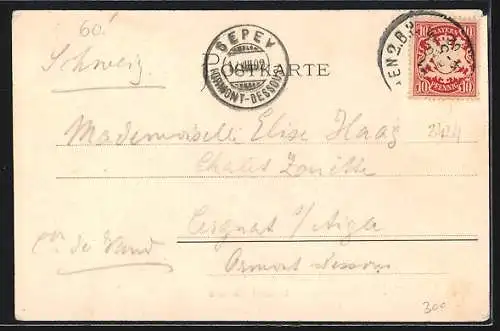 60
Schweiz
SEPEY
(ORMONT-DESSOUS)
POSTKARTE
BAYERN
10 10
PFENNIG
Mademoiselle Elise Haag
Chalet
Cergnat s/Aigle
Ormont dessous
Con de Vaud
300